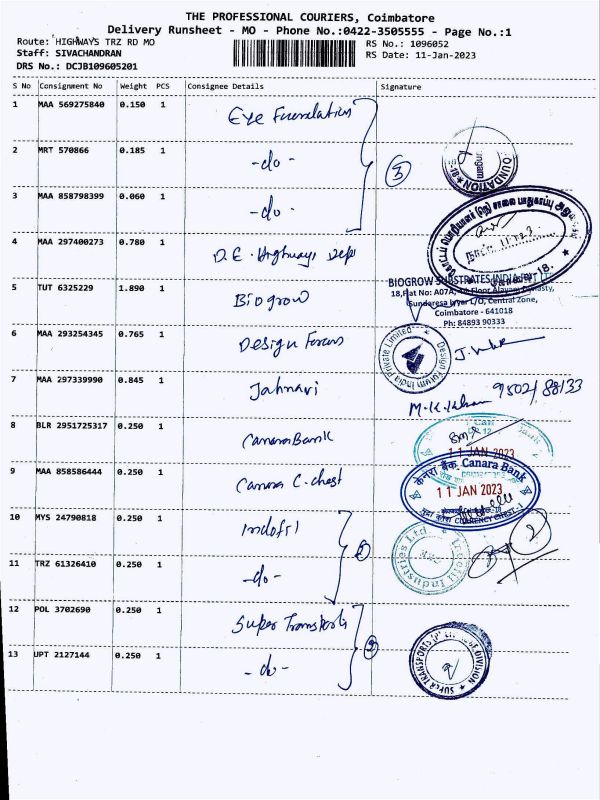 THE PROFESSIONAL COURIERS, Coimbatore
Delivery Runsheet - MO - Phone No.:0422-3505555 - Page No.:1
Route: HIGHWAYS TRZ RD MO
RS No.: 1096052
Staff: SIVACHANDRAN
RS Date: 11-Jan-2023
DRS No.: DCJB109605201
S No Consignment No Weight PCS Consignee Details Signature
1 MAA 569275840 0.150 1 Eye Foundation
2 MRT 570866 0.185 1 -do-
3 MAA 858798399 0.060 1 -do-
4 MAA 297400273 0.780 1 D.E. Highways Dep
5 TUT 6325229 1.890 1 Biogrow
BIOGROW SUBSTRATES INDIA PVT LTD
Coimbatore - 641018
Ph: 84893 90333
6 MAA 293254345 0.765 1 Design Forum
Design Forum India Private Limited
7 MAA 297339990 0.845 1 Jahnavi
8 BLR 2951725317 0.250 1 Canara Bank
11 JAN 2023
9 MAA 858586444 0.250 1 Canara C. chest
केनरा बैंक Canara Bank
11 JAN 2023
CURRENCY CHEST-1
10 MYS 24790818 0.250 1 Indofil
11 TRZ 61326410 0.250 1 -do-
12 POL 3702690 0.250 1 Super Transports
13 UPT 2127144 0.250 1 -do-